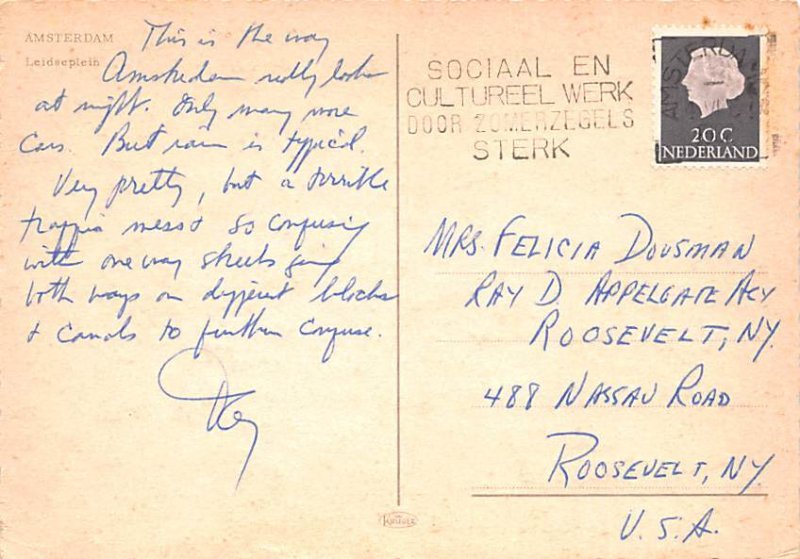 AMSTERDAM
Leidseplein
This is the way
Amsterdam really looks
at night. Only many more
Cars. But rain is typical.
Very pretty, but a terrible
traffic mess & so confusing
with one way streets going
both ways on different blocks
& Canals to further Confuse.
SOCIAAL EN
CULTUREEL WERK
DOOR ZOMERZEGELS
STERK
AMSTERDAM
20C
NEDERLAND
MRS. FELICIA DOUSMAN
RAY D. APPELGATE AGY
ROOSEVELT, NY.
488 NASSAU ROAD
ROOSEVELT, NY
U.S.A.
KRUGER